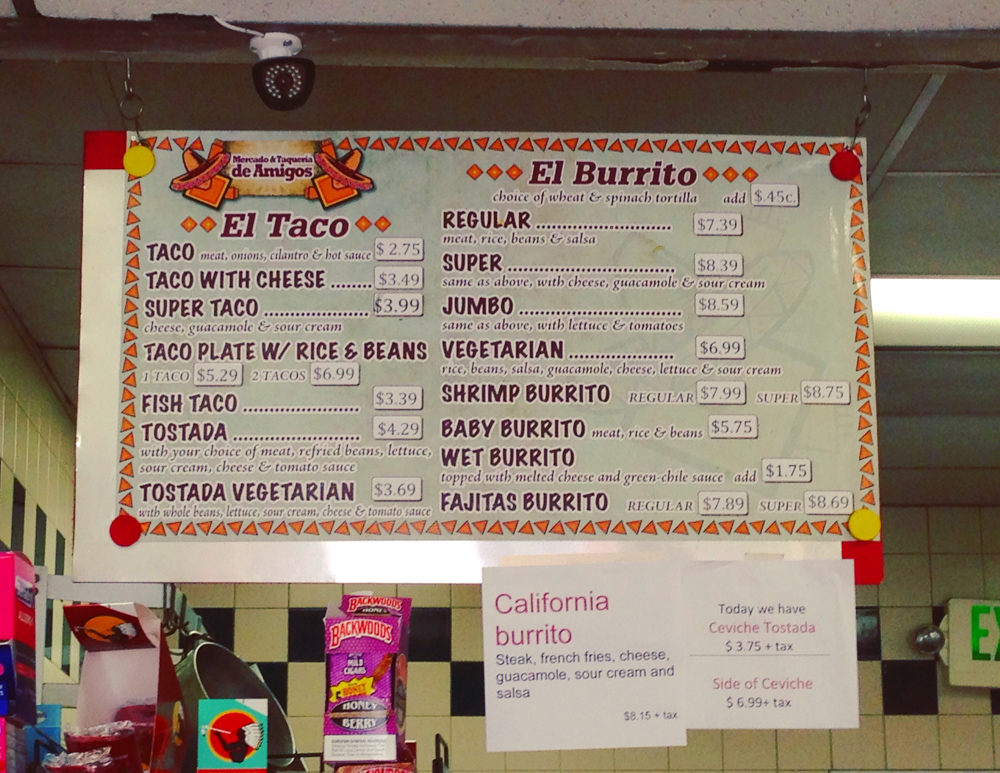 Mercado & Taqueria
de Amigos
El Taco
TACO meat, onions, cilantro & hot sauce $ 2.75
TACO WITH CHEESE ........ $3.49
SUPER TACO ..................... $3.99
cheese, guacamole & sour cream
TACO PLATE W/ RICE & BEANS
1 TACO $5.29 2 TACOS $6.99
FISH TACO ....................... $3.39
TOSTADA ......................... $4.29
with your choice of meat, refried beans, lettuce,
sour cream, cheese & tomato sauce
TOSTADA VEGETARIAN $3.69
with whole beans, lettuce, sour cream, cheese & tomato sauce
El Burrito
choice of wheat & spinach tortilla add $.45c.
REGULAR ........................... $7.39
meat, rice, beans & salsa
SUPER ................................. $8.39
same as above, with cheese, guacamole & sour cream
JUMBO ................................ $8.59
same as above, with lettuce & tomatoes
VEGETARIAN ..................... $6.99
rice, beans, salsa, guacamole, cheese, lettuce & sour cream
SHRIMP BURRITO REGULAR $7.99 SUPER $8.75
BABY BURRITO meat, rice & beans $5.75
WET BURRITO
topped with melted cheese and green-chile sauce add $1.75
FAJITAS BURRITO REGULAR $7.89 SUPER $8.69
California
burrito
Steak, french fries, cheese,
guacamole, sour cream and
salsa
$8.15 + tax
Today we have
Ceviche Tostada
$ 3.75 + tax
Side of Ceviche
$ 6.99+ tax
BACKWOODS
HONEY
BACKWOODS
MILD
CIGARS
HONEY
BERRY
EX